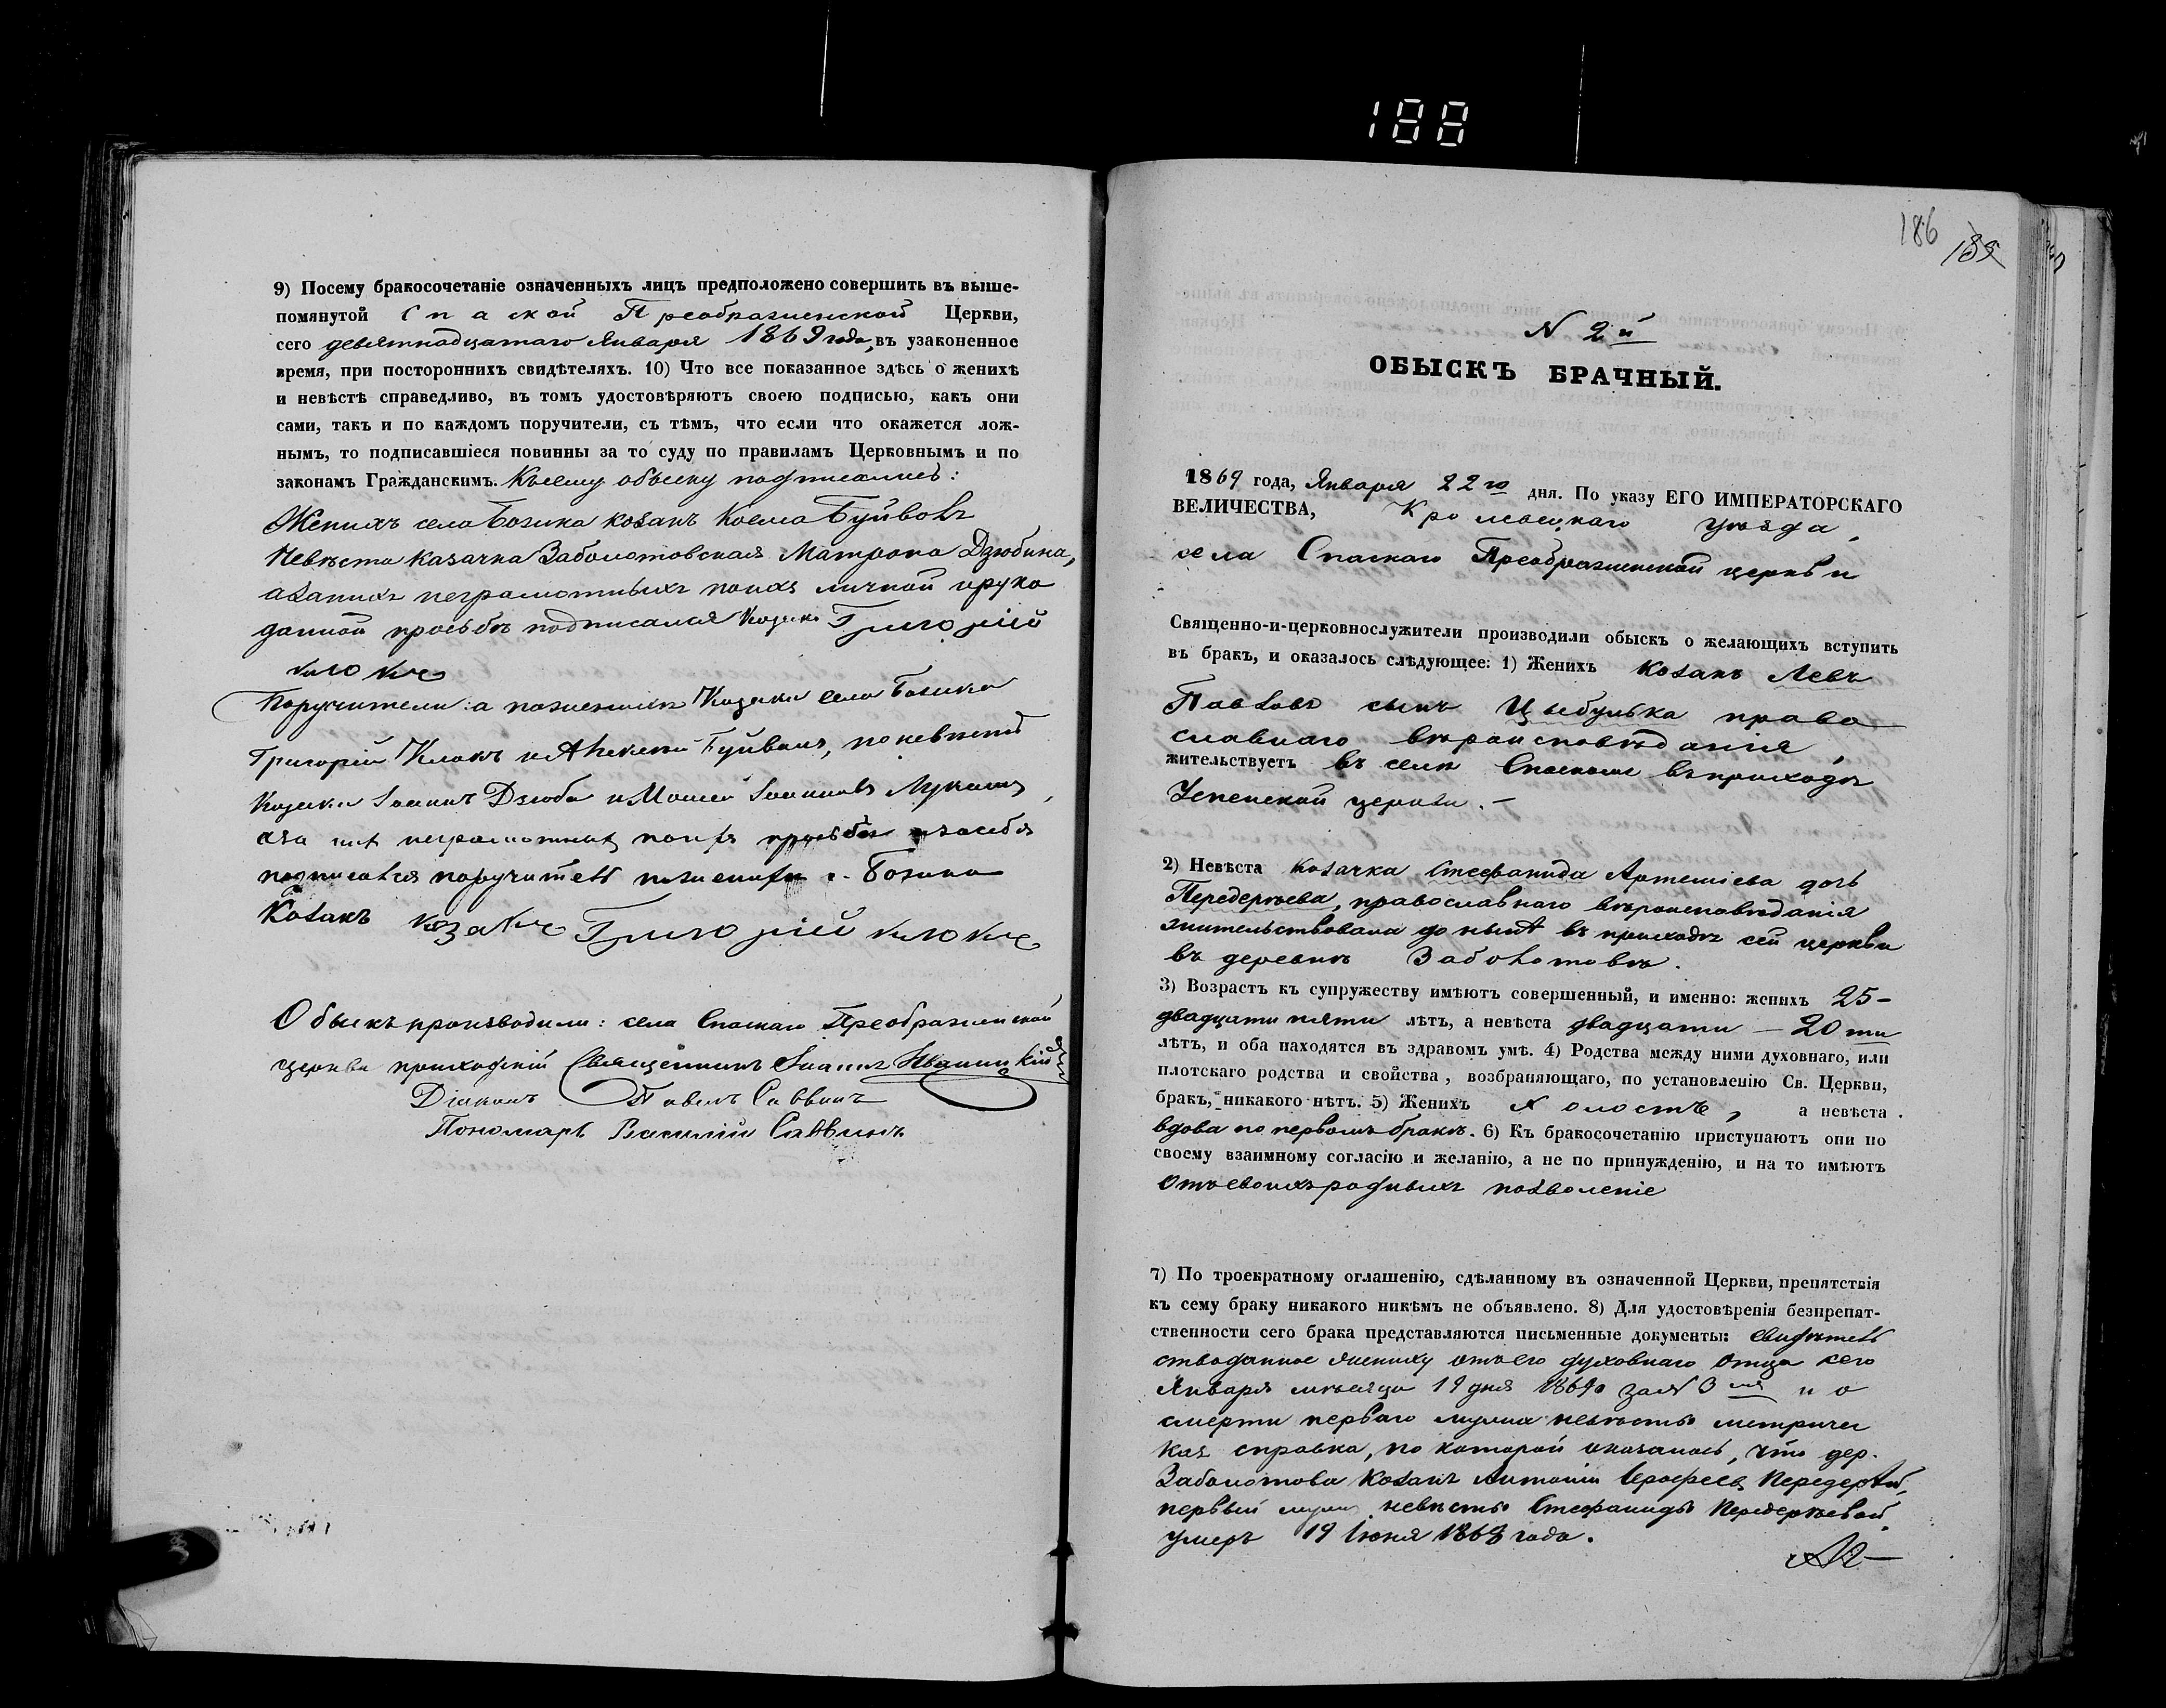 188
9) Посему бракосочетаніе означенныхъ лицъ предположено совершить въ выше-
помянутой Спаской Преображенской Церкви,
сего девятнадцатаго Января 1869 года, въ узаконенное
время, при постороннихъ свидѣтеляхъ. 10) Что все показанное здѣсь о женихѣ
и невѣстѣ справедливо, въ томъ удостовѣряютъ своею подписью, какъ они
сами, такъ и по каждомъ поручители, съ тѣмъ, что если что окажется лож-
нымъ, то подписавшіеся повинны за то суду по правиламъ Церковнымъ и по
законамъ Гражданскимъ. Късему обыску подписались:
Женихъ села Бозика козакъ Косма Буйволъ
Невѣста казачка Заболотовская Матрона Дзюбина,
а неграмотныхъ поихъ личной ирукo
данной прозьбѣ подписался Козакъ Григорій
клокъ
Поручители: а поженихѣ Козаки села Бозика
Григорій Клокъ и Алексѣй Буйволъ, поневѣстѣ
Козаки Іоаннъ Дзюба и Моисей Іоанновъ
неграмотныхъ поихъ прозьбѣ изасебя
подписался поручитель поженихѣ с. Бозика
Козакъ козакъ Григорій клокъ
Обыскъ производили: села Спаскаго Преображенской
церкви приходскій Священникъ Іоаннъ Иваницкій
Діаконъ Павелъ Саввинъ
Пономарь Василій Саввинъ
186
189
N 2й
ОБЫСКЪ БРАЧНЫЙ.
1869 года, Января 22го дня. По указу ЕГО ИМПЕРАТОРСКАГО
ВЕЛИЧЕСТВА, Кролевецкаго уѣзда,
села Спаскаго Преображенской церкви
Священно-и-церковнослужители производили обыскъ о желающихъ вступить
въ бракъ, и оказалось слѣдующее: 1) Женихъ козакъ Левъ
Павловъ сынъ Цыбулька право
славнаго вѣроисповѣданія,
жительствуетъ въ селѣ Спаскомъ въприходѣ
Успенской церкви.–
2) Невѣста козачка Стефанида Артеміева дочь
Передерѣева, православнаго вѣроисповѣданія
жительствовала донынѣ въ приходѣ сей церкви
въ деревнѣ Заболотовѣ.
3) Возрастъ къ супружеству имѣютъ совершенный, и именно: женихъ 25–
двадцати пяти лѣтъ, а невѣста двадцати – 20 ти
лѣтъ, и оба находятся въ здравомъ умѣ. 4) Родства между ними духовнаго, или
плотскаго родства и свойства, возбраняющаго, по установленію Св. Церкви,
бракъ, никакого нѣтъ. 5) Женихъ холостъ, а невѣста
вдова по первомъ бракѣ. 6) Къ бракосочетанію приступаютъ они по
своему взаимному согласію и желанію, а не по принужденію, и на то имѣютъ
Отъсвоихъродныхъ позволеніе
7) По троекратному оглашенію, сдѣланному въ означенной Церкви, препятствія
къ сему браку никакого никѣмъ не объявлено. 8) Для удостовѣренія безпрепят-
ственности сего брака представляются письменные документы: свидѣтель
стводанное жениху отъего духовнаго Отца сего
Января мѣсяца 19 дня 1869 за N 3 и о
смерти перваго мужа невѣсты метричес
кая справка, по которой оказалось, что дер.
Заболотова козакъ Антоній Ерофеевъ Передерѣй,
первый мужъ невѣсты Стефаниды Передерѣевой,
умеръ 19 Іюня 1868 года.